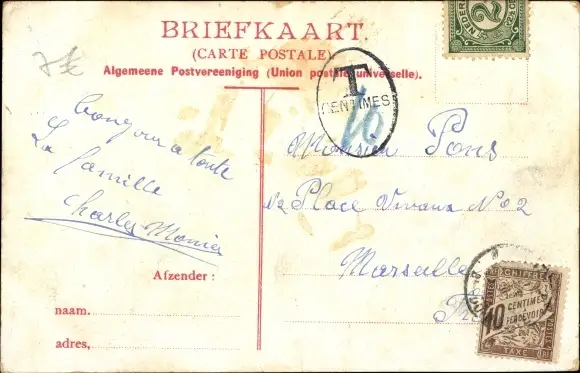 BRIEFKAART.
(CARTE POSTALE)
Algemeene Postvereeniging (Union postale universelle).
7€
T
CENTIMES
10
NEDERL
2½
bonjour a toute
La famille
Charles Monier
Monsieur Pons
No 2
Marseille
Afzender:
naam.
adres,
CHIFFRE
10
CENTIMES
PERCEVOIR
TAXE